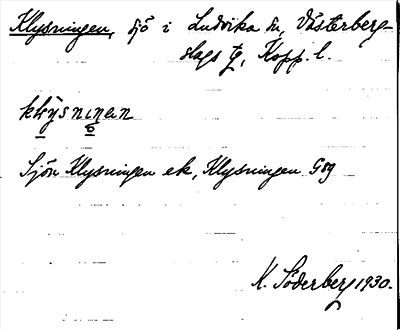 Klysningen, sjö i Ludvika sn, Västerberg-
slags tg, Kopp. l.
klysninan
Sjön Klysningen ek, Klysningen Gsg
K. Söderberg 1930.